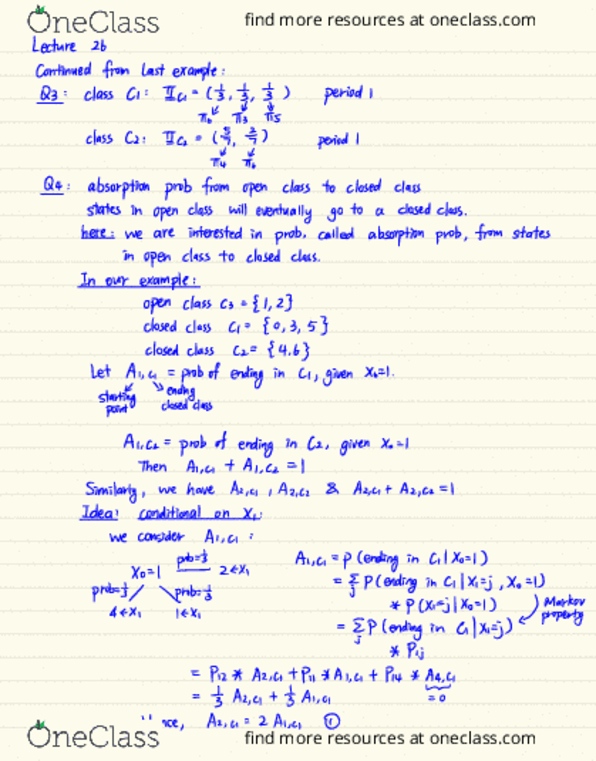 OneClass find more resources at oneclass.com
Lecture 26
Continued from last example:
Q3: class C1: ΠC1 = (1/3, 1/3, 1/3) period 1
π0 π3 π5
class C2: ΠC2 = ( , /7) period 1
π4 π6
Q4: absorption prob from open class to closed class
states in open class will eventually go to a closed class.
here: we are interested in prob, called absorption prob, from states
in open class to closed class.
In our example:
open class C3 = {1, 2}
closed class C1 = {0, 3, 5}
closed class C2 = {4.6}
Let A1,C1 = prob of ending in C1, given X0=1.
starting point ending closed class
A1,C2 = prob of ending in C2, given X0=1
Then A1,C1 + A1,C2 = 1
Similarly, we have A2,C1 , A2,C2 & A2,C1 + A2,C2 = 1
Idea: conditional on X1:
we consider A1,C1 :
X0=1 prob=1/3 2←X1
prob=1/3 prob=1/3
4←X1 1←X1
A1,C1 = P (ending in C1 | X0=1)
= Σj P (ending in C1 | X1=j , X0=1)
* P(X1=j | X0=1)
= Σj P (ending in C1 | X1=j) Markov property
* P1j
= P12 * A2,C1 + P11 * A1,C1 + P14 * A4,C1
= 1/3 A2,C1 + 1/3 A1,C1 =0
nce, A2,C1 = 2 A1,C1 ①
OneClass find more resources at oneclass.com